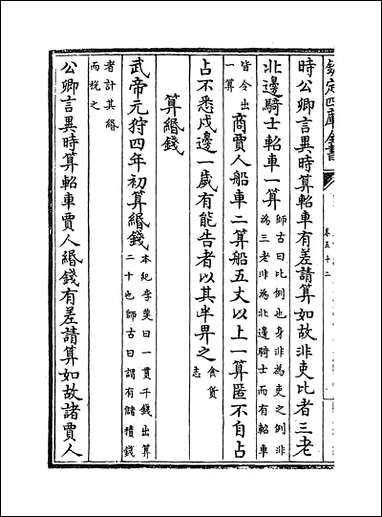 欽定四庫全書
卷五十二
時公卿言異時算軺車有差請算如故非吏比者三老
北邊騎士軺車一算師古曰比例也身非為吏之例非為三老非為北邊騎士而有軺車
皆令出一算商賈人船車二算船五丈以上一算匿不自占
占不悉戍邊一歲有能告者以其半畀之食貨志
算緡錢
武帝元狩四年初算緡錢本紀李斐曰一貫千錢出算二十也師古曰謂有儲積錢
者計其緡而稅之
公卿言異時算軺車賈人緡錢有差請算如故諸賈人